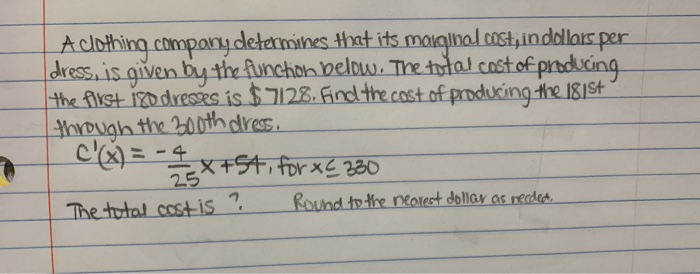 A clothing company determines that its marginal cost, in dollars per
dress, is given by the function below. The total cost of producing
the first 180 dresses is $7128. Find the cost of producing the 181st
through the 300th dress.
C'(x) = -4/25 x + 54, for x ≤ 330
The total cost is ? Round to the nearest dollar as needed.